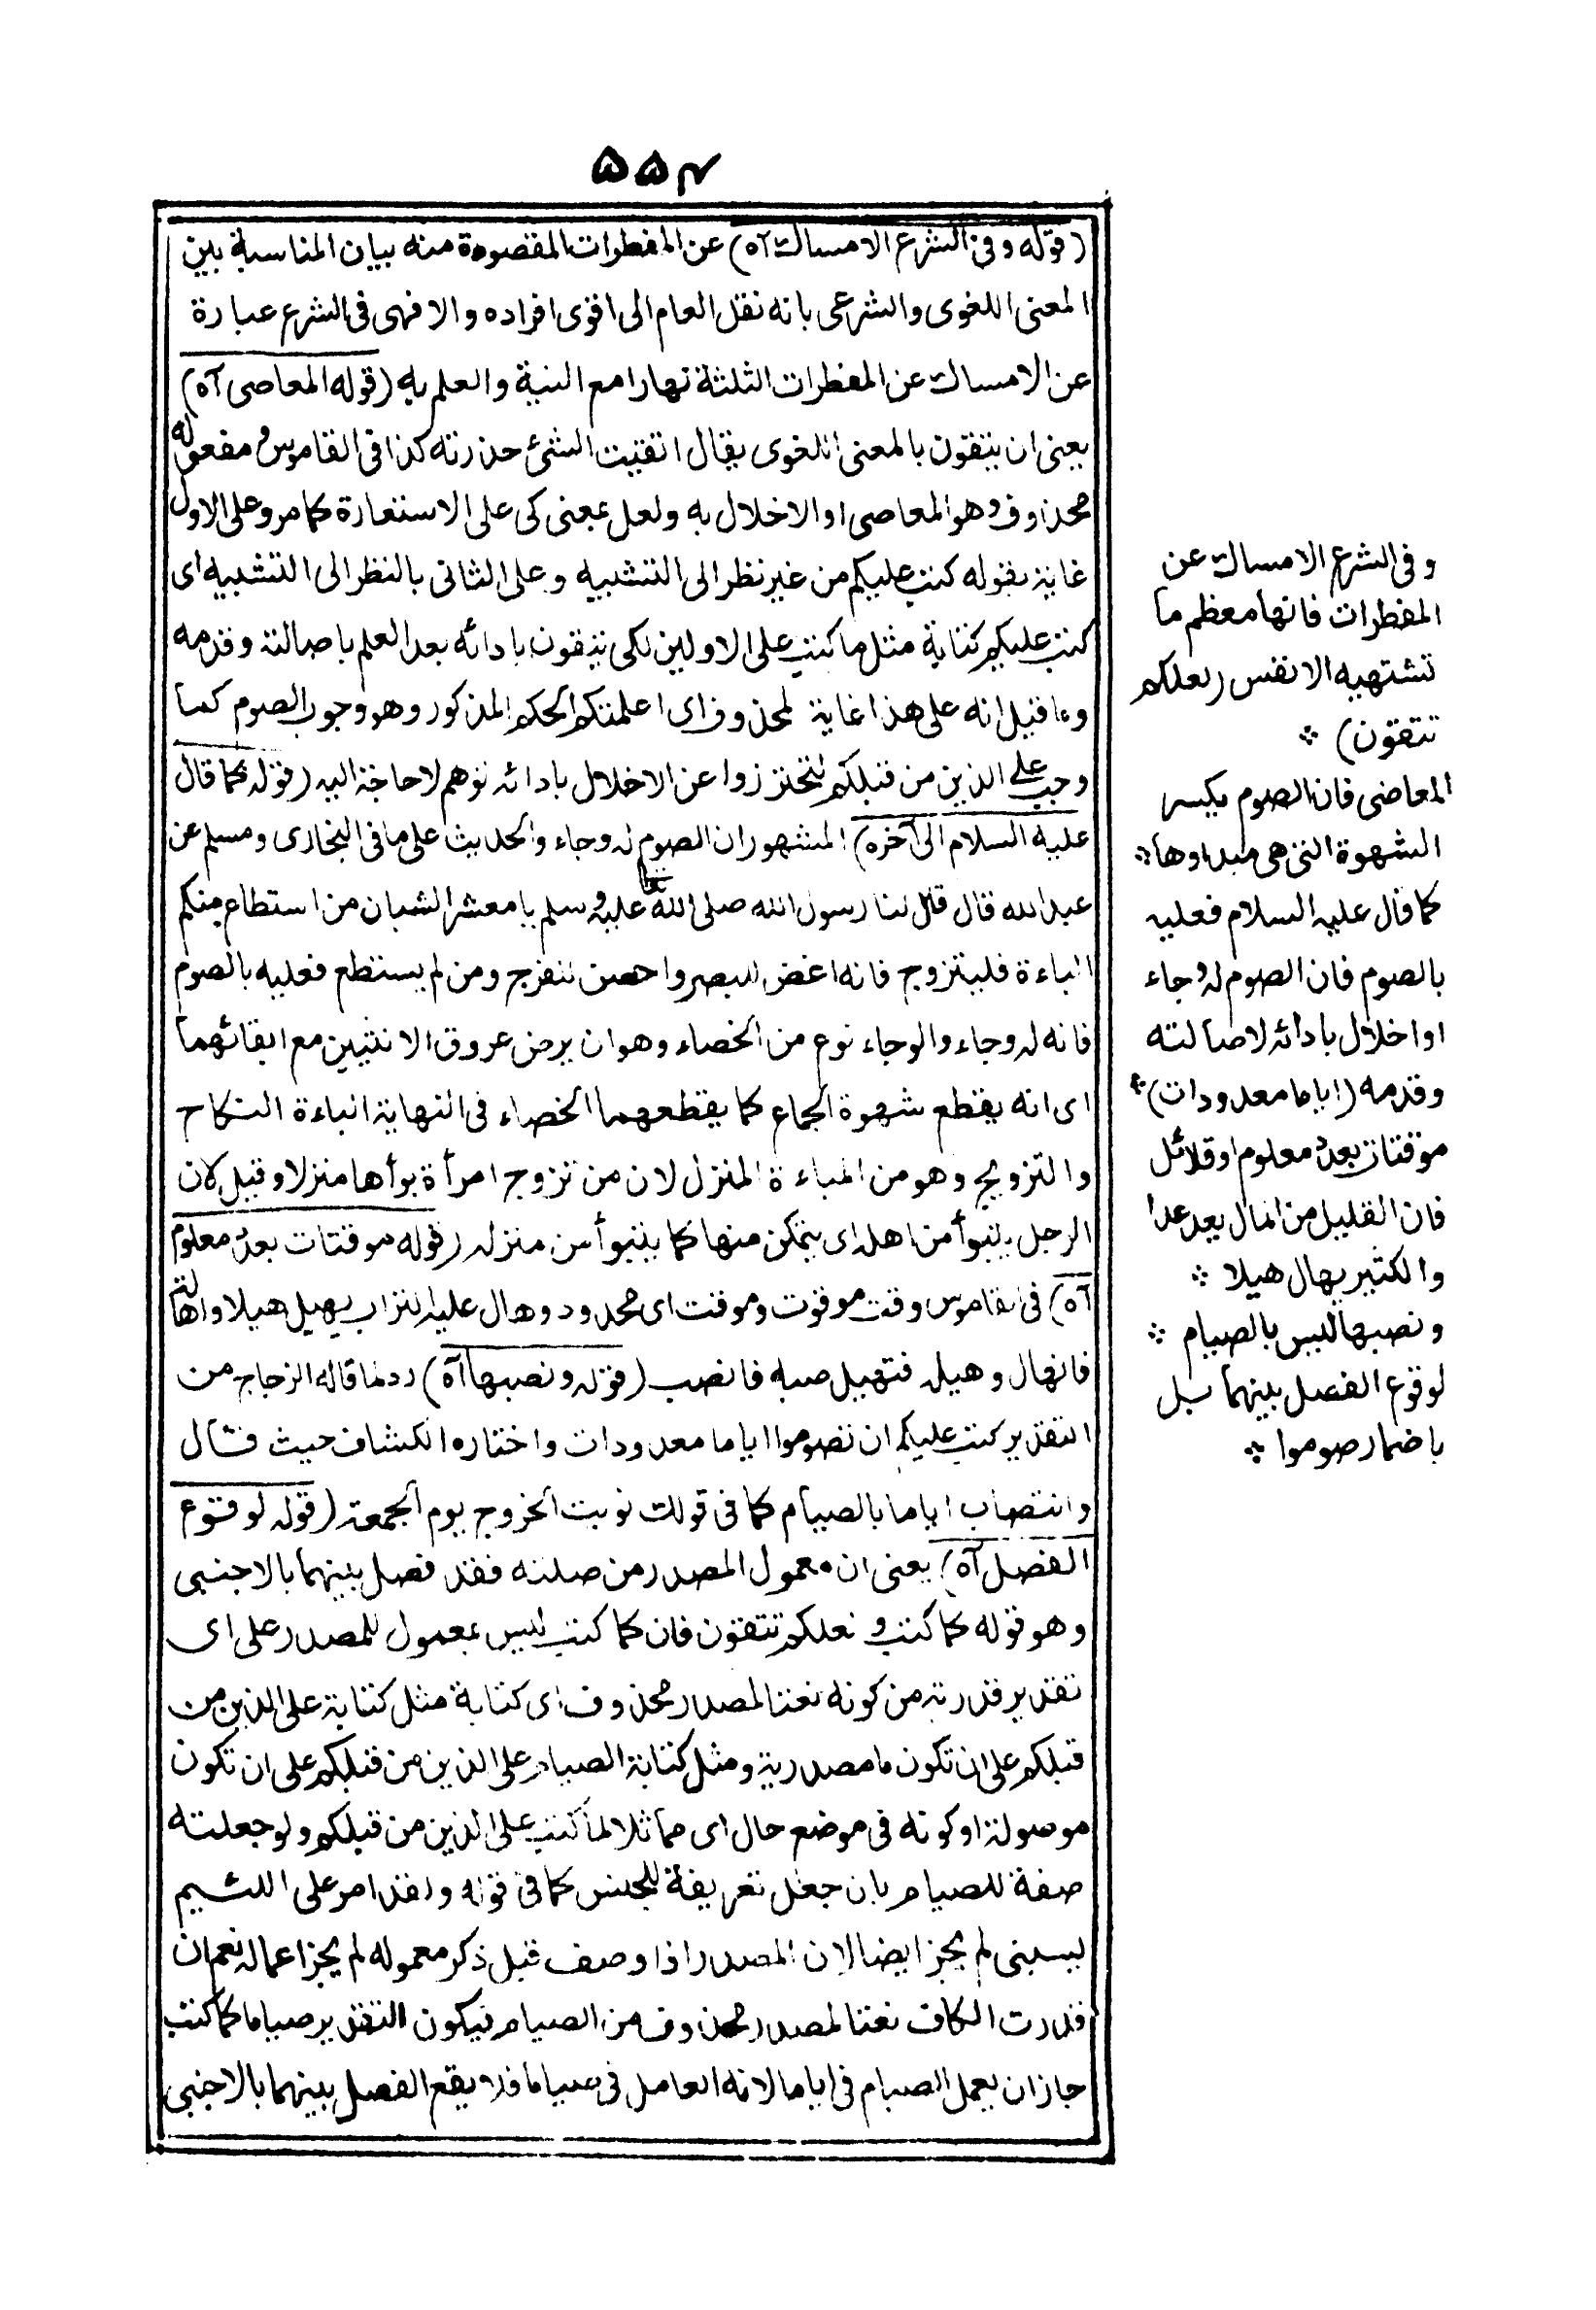 ۵۵۴
(قوله وفى الشرع الامساك آه) عن المفطرات المقصودة منه بيان المناسبة بين
المعنى اللغوى والشرعى بانه نقل العام الى اقوى افراده والا فهى فى الشرع عبارة
عن الامساك عن المفطرات الثلثة نهارا مع النية والعلم به (قوله المعاصى آه)
يعنى ان يتقون بالمعنى اللغوى يقال اتقيت الشئ حذرته كذا فى القاموس ومفعوله
محذوف وهو المعاصى او الاخلال به ولعل بمعنى كى على الاستعارة كما مر وعلى الاول
غاية بقوله كتب عليكم من غير نظر الى التشبيه وعلى الثانى بالنظر الى التشبيه اى
كتب عليكم كتابة مثل ما كتب على الاولين لكى تتقون بادائه بعد العلم باصالته وقدمه
وما قيل انه على هذا غاية لمحذوف اى اعلمتكم الحكم المذكور وهو وجوب الصوم كما
وجب على الذين من قبلكم لتحترزوا عن الاخلال بادائه توهم لا حاجة اليه (قوله كما قال
عليه السلام الى آخره) المشهور ان الصوم له وجاء والحديث على ما فى البخارى ومسلم عن
عبد الله قال قال لنا رسول الله صلى الله عليه وسلم يا معشر الشبان من استطاع منكم
الباءة فليتزوج فانه اغض للبصر واحصن للفرج ومن لم يستطع فعليه بالصوم
فانه له وجاء والوجاء نوع من الخصاء وهو ان يرض عروق الانثيين مع ابقائهما
اى انه يقطع شهوة الجماع كما يقطعهما الخصاء فى النهاية الباءة النكاح
والتزويج وهو من المباءة المنزل لان من تزوج امرأة بوأها منزلا وقيل لان
الرجل يتبوأ من اهله اى يتمكن منها كما يتبوأ من منزله (قوله موقتات بعدد معلوم
آه) فى القاموس وقت موقوت وموقت اى محدود وهال عليه التراب يهيل هيلا واهالته
فانهال وهيله فتهيل صبه فانصب (قوله ونصبها آه) رد لما قاله الزجاج من
التقدير كتب عليكم ان تصوموا اياما معدودات واختاره الكشاف حيث قال
وانتصاب اياما بالصيام كما فى قولك نويت الخروج يوم الجمعة (قوله لوقوع
الفصل آه) يعنى ان معمول المصدر من صلته فقد فصل بينهما بالاجنبى
وهو قوله كما كتب و لعلكم تتقون فان كما كتب ليس بمعمول للمصدر على اى
تقدير قدرته من كونه نعتا لمصدر محذوف اى كتابة مثل كتابة على الذين من
قبلكم على ان تكون ما مصدرية ومثل كتابة الصيام على الذين من قبلكم على ان تكون
موصولة او كونه فى موضع حال اى مماثلا لما كتب على الذين من قبلكم ولو جعلته
صفة للصيام بان جعل تعريفة للجنس كما فى قوله ولقد امر على اللئيم
يسبنى لم يجز ايضا لان المصدر اذا وصف قبل ذكر معموله لم يجز اعماله نعم ان
قدرت الكاف نعتا لمصدر محذوف من الصيام فيكون التقدير صياما كما كتب
جاز ان يعمل الصيام فى اياما لانه العامل فى صياما فلا يقع الفصل بينهما بالاجنبى
وفى الشرع الامساك عن
المفطرات فانها معظم ما
تشتهيه الانفس (لعلكم
تتقون) ∴
المعاضى فان الصوم يكسر
الشهوة التى هى مبداوها ∴
كما قال عليه السلام فعليه
بالصوم فان الصوم له وجاء
او اخلال بادائه لاصالته
وقدمه (اياما معدودات) ∴
موقتات بعدد معلوم او قلائل
فان القليل من المال يعد عدا
والكثير يهال هيلا ∴
ونصبها ليس بالصيام ∴
لوقوع الفصل بينهما بل
باضمار صوموا ∴